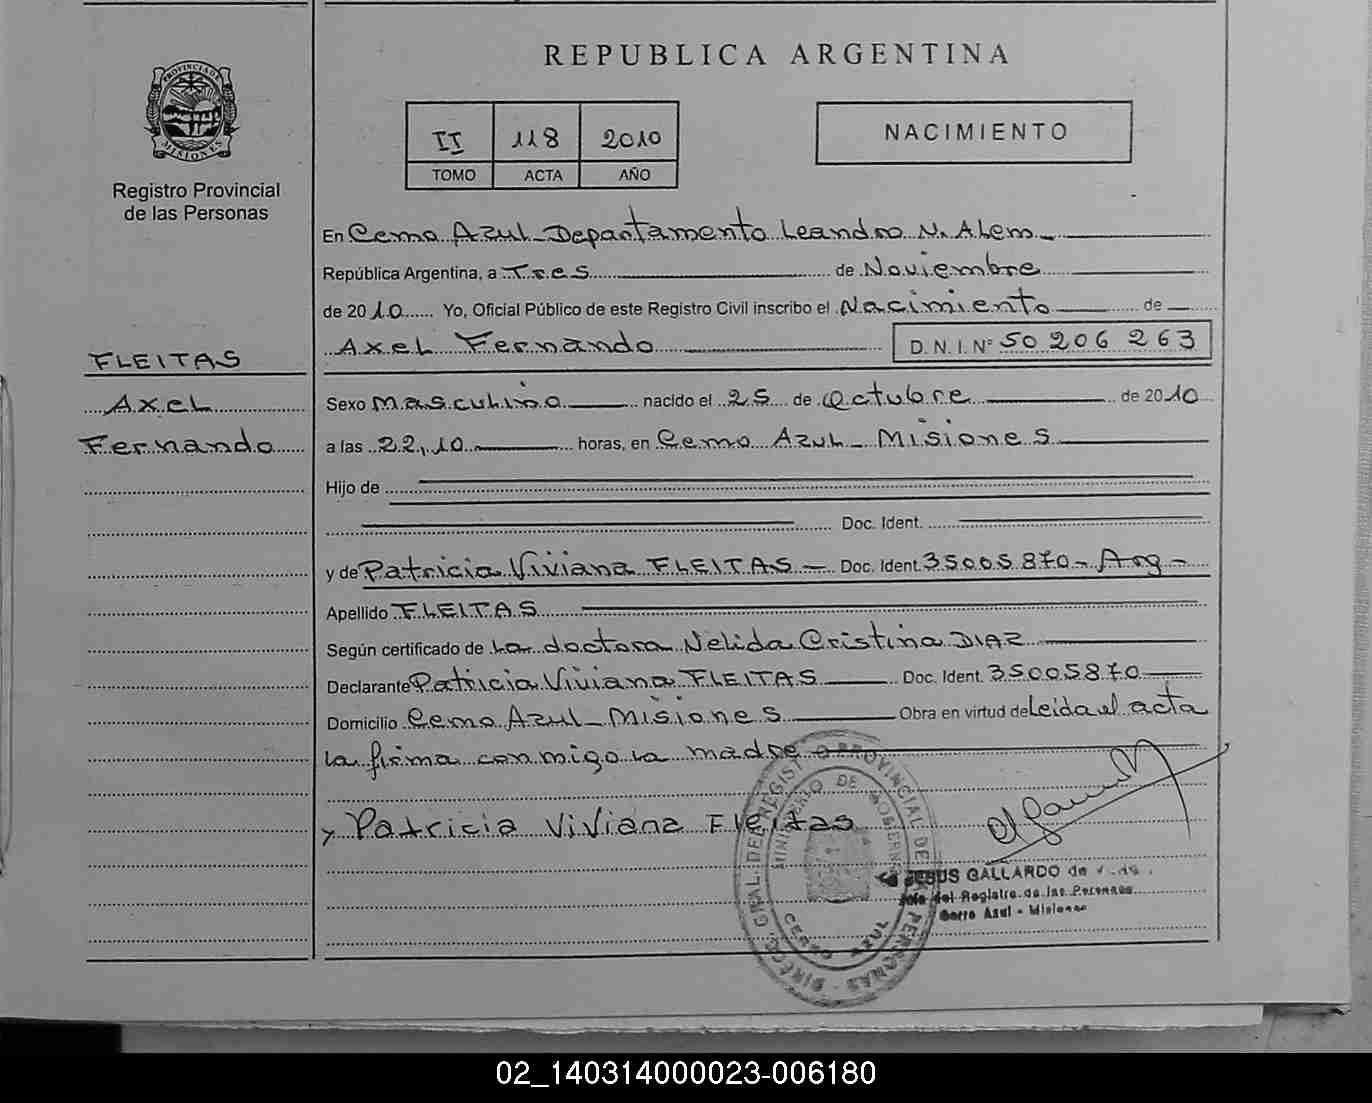 REPUBLICA ARGENTINA
PROVINCIA DE
MISIONES
Registro Provincial
de las Personas
II 118 2010
TOMO ACTA AÑO
NACIMIENTO
En Cerro Azul - Departamento Leandro N. Alem -
República Argentina, a Tres de Noviembre
de 2010 Yo, Oficial Público de este Registro Civil inscribo el Nacimiento de
Axel Fernando D.N.I. Nº 50 206 263
FLEITAS
Axel
Fernando
Sexo Masculino nacido el 25 de Octubre de 2010
a las 22,10 horas, en Cerro Azul - Misiones
Hijo de
Doc. Ident.
y de Patricia Viviana FLEITAS - Doc. Ident. 35005870 - Arg -
Apellido FLEITAS
Según certificado de La doctora Nelida Cristina DIAZ
Declarante Patricia Viviana FLEITAS Doc. Ident. 35005870
Domicilio Cerro Azul - Misiones Obra en virtud de Leida el acta
la firma conmigo la madre
Patricia Viviana Fleitas
DIREC. GRAL. DEL REGIST PROVINCIAL DE PERSONAS
MINISTERIO DE GOBIERN
CERRO AZUL
JESUS GALLARDO de
Jefe del Registro de las Personas
Cerro Azul - Misiones
02_140314000023-006180